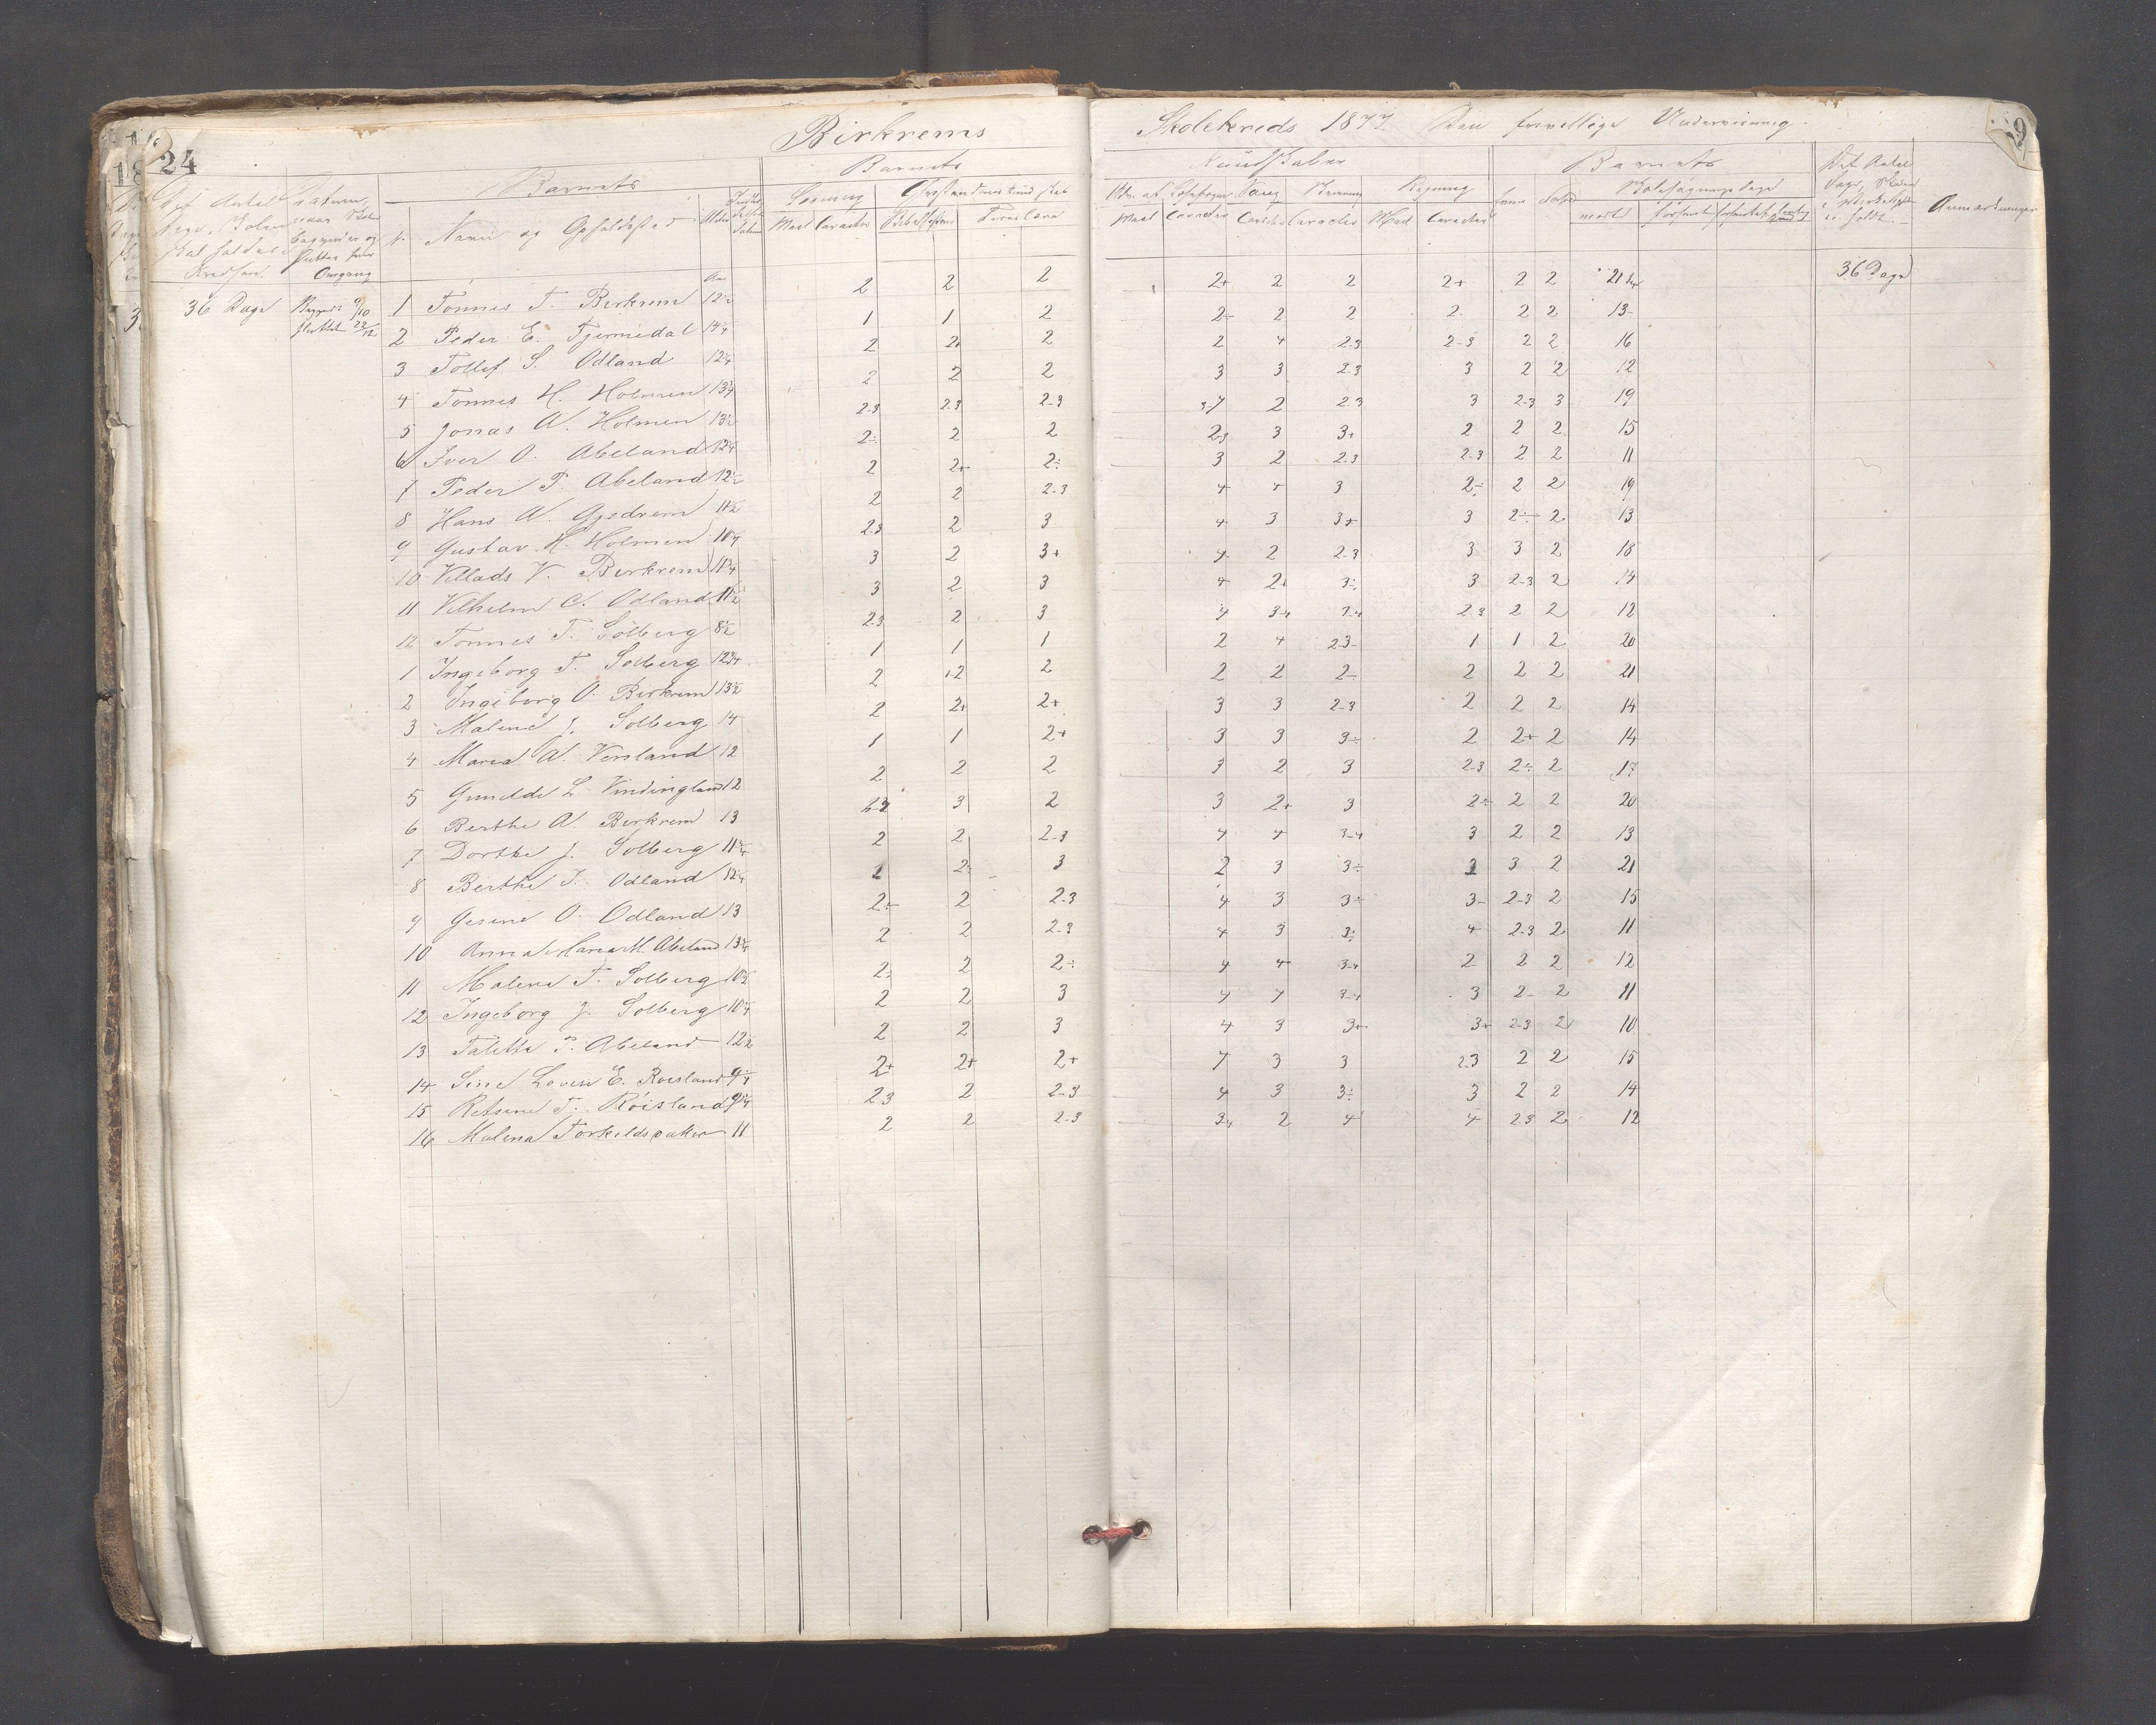 24
Birkrems Skolekreds 1877. Den frivillige Undervisning
9
Det Antal Dage, Skolen skal holdes i Kredsen. Datum, naar Skolen begynder og slutter hver Omgang Barnets Barnets Kundskaber Barnets Det Antal Dage, Skolen i Virkeligheden er holdt. Anmærkninger
N. Navn og Opholdssted Alder Læsning Christendomskundskab Udv. af Læsebogen Sang Skrivning Regning Evner Forhold Skolesøgningsdage
Maal Caracter Bibelhistorie Troeslære Maal Caracter Caracter Caracter Maal Caracter mødt forsømt
36 Dage Begyndt 9/10 sluttet 22/12 1 Tønnes T. Birkrem 12½ 2 2 2 2+ 2 2 2+ 2 2 21 36 Dage
2 Peder E. Tjernedal 14¼ 1 1 2 2- 2 2 2- 2 2 13
3 Tollef S. Odland 12¼ 2 2+ 2 2 4 2-3 2-3 2 2 16
4 Tønnes H. Holmen 13¼ 2 2 2 3 3 2-3 3 2 2 12
5 Jonas A. Holmen 13½ 2-3 2-3 2-3 3-4 2 2-3 3 2-3 3 19
6 Iver O. Abeland 12¼ 2- 2 2 2-3 3 3+ 2 2 2 15
7 Peder P. Abeland 12½ 2 2+ 2÷ 3 2 2-3 2-3 2 2 11
8 Hans A. Gjedrem 11½ 2 2 2-3 4 4 3 2÷ 2 2 19
9 Gustav H. Holmen 10¼ 2-3 2 3 4 3 3+ 3 2÷ 2 13
10 Villads V. Birkrem 11¼ 3 2 3+ 4 2 2-3 3 3 2 18
11 Vilhelm C. Odland 11½ 3 2 3 4 2+ 3÷ 3 2-3 2 14
12 Tønnes T. Solberg 8½ 2-3 2 3 4 3-4 3-4 2-3 2 2 12
1 Ingeborg T. Solberg 12¾ 1 1 1 2 4 2-3 1 1 2 20
2 Ingeborg O. Birkrem 13½ 2 1-2 2 2 2 2- 2 2 2 21
3 Malene J. Solberg 14 2 2+ 2+ 3 3 2-3 2 2 2 14
4 Maria A. Versland 12 1 1 2+ 3 3 3÷ 2 2+ 2 14
5 Gunilde L. Vindingland 12 2 2 2 3 2 3 2-3 2÷ 2
6 Berthe A. Birkrem 13 2-3 3 2 3 2+ 3 2÷ 2 2 20
7 Dorthe J. Solberg 11¼ 2 2 2-3 4 4 3-4 3 2 2 13
8 Berthe T. Odland 12¼ 2÷ 3 2 3 3÷ 3 2 21
9 Gesine O. Odland 13 2÷ 2 2-3 4 3 3÷ 3- 2-3 2 15
10 Anna Maria M. Abeland 13¼ 2 2 2-3 4 3 3÷ 4 2-3 2 11
11 Malene T. Solberg 10½ 2÷ 2 2÷ 4 4 3-4 2- 2 2 12
12 Ingeborg J. Solberg 10¼ 2 2 3 4 4 3-4 3 2- 2 11
13 Talette P. Abeland 12½ 2 2 3 4 3 3+ 3+ 2-3 2 10
14 Sine Lovise E. Røisland 9¼ 2+ 2+ 2+ 4 3 3 2-3 2 2 15
15 Retsine T. Røisland 9¼ 2-3 2 2-3 4 3 3÷ 3 2 2 14
16 Malena Torkeldsdatter 11 2 2 2-3 3-4 2 4 4 2-3 2 12